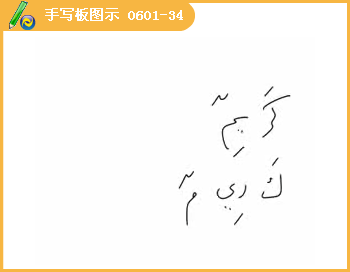 手写板图示 0601-34
كَرِيمٌ
كَ رِي مٌ